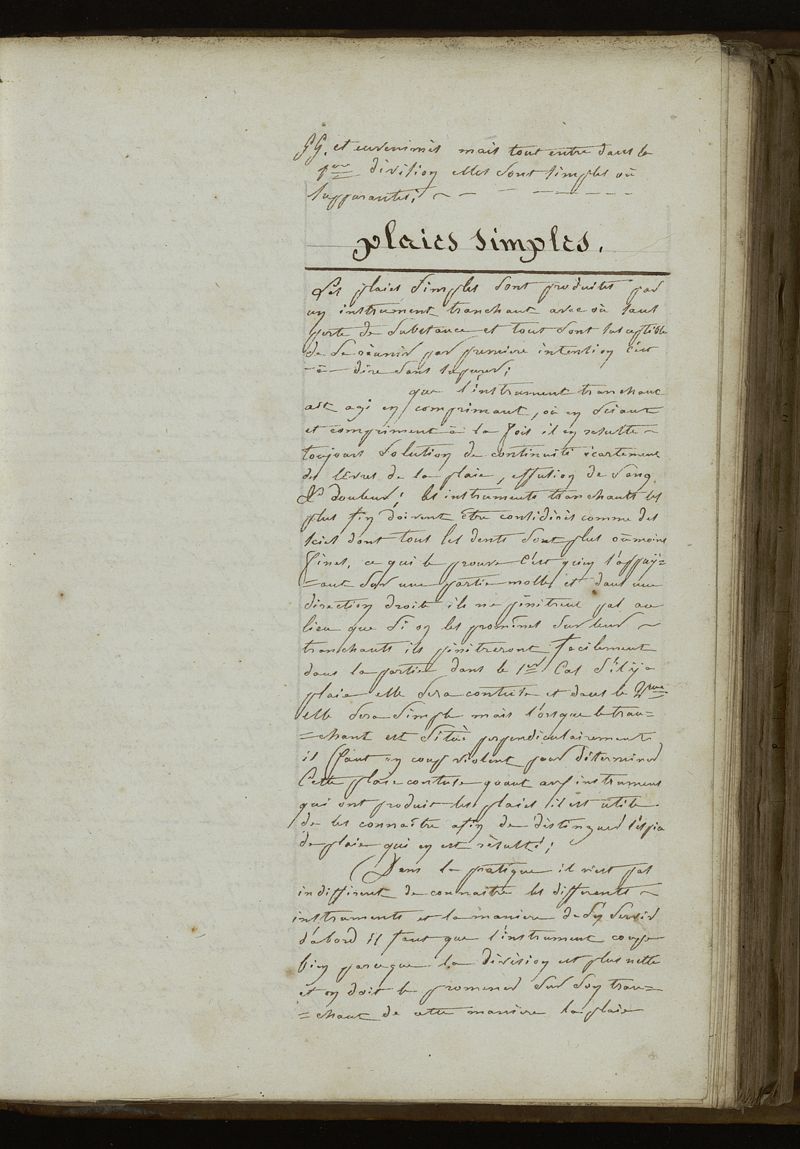 et envenimés mais tout entre dans le
1ere division elles sont simples où
supparantes;
plaies simples.
Les plaies simples sont produites par
un instrument tranchant avec où sans
perte de substance et tout sont susceptible
de se réunir par premiere intention c'est
-à-dire sans supurer;
que l'instrument tranchant
ait agi en comprimant, où en sciant
et comprimant à la fois il en resulte ~
toujours solution de continuité écartement
des lèvres de la plaie, effusion de sang
& douleur; les instruments tranchants les
plus fin doivent être considérés comme des
scies dont tous les dents sont plus où moins
fines, ce qui le prouve c'est qu'en l'appuy=
=ant sur une partie molle et dans une
direction droite ils ne pénitrent pas au
lieu que si on les promènes sur leur ~
tranchants ils pénitreront facilement
dans la partie dans le 1er Cas s'il y a
plaie elle sera contuse et dans le 2eme
elle sera simple mais l'orsque le tran=
=chant est situé perpendiculairement
il faut un coup violent pour déterminer
Cette plaie contuse quant aux instrument
qui ont produit les plaies il est utile
de les connaître afin de distinguer l'éspèce
de plaie qui en est résulté;
Dans la pratique il n'est pas
indifférent de connaitre les differents ~
instruments et la maniere de s'en servir
d'abord il faut que l'instrument coupe
bien parceque la division est plus nette
et on doit le promener sur son tran=
=chant de cette maniere la plaie